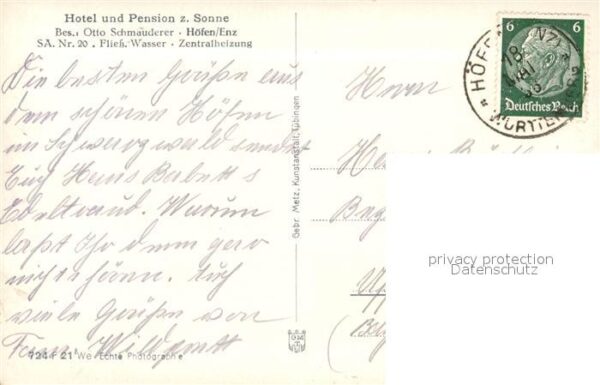 Hotel und Pension z. Sonne
Bes.: Otto Schmauderer · Höfen/Enz
SA. Nr. 20 . Fließ. Wasser · Zentralheizung
Die besten Grüße aus
dem schönen Höfen
im Schwarzwald sendet
Euch Hans Babett
Edeltraud. Warum
laßt Ihr denn gar
nichts hören. Auch
viele Grüße von
Fam. Wildprett
724 F 21 We Echte Photographie
Gebr. Metz, Kunstanstalt, Tübingen
Herrn
6 6
Deutsches Reich
HÖFEN
WÜRTTEM
18
privacy protection
Datenschutz